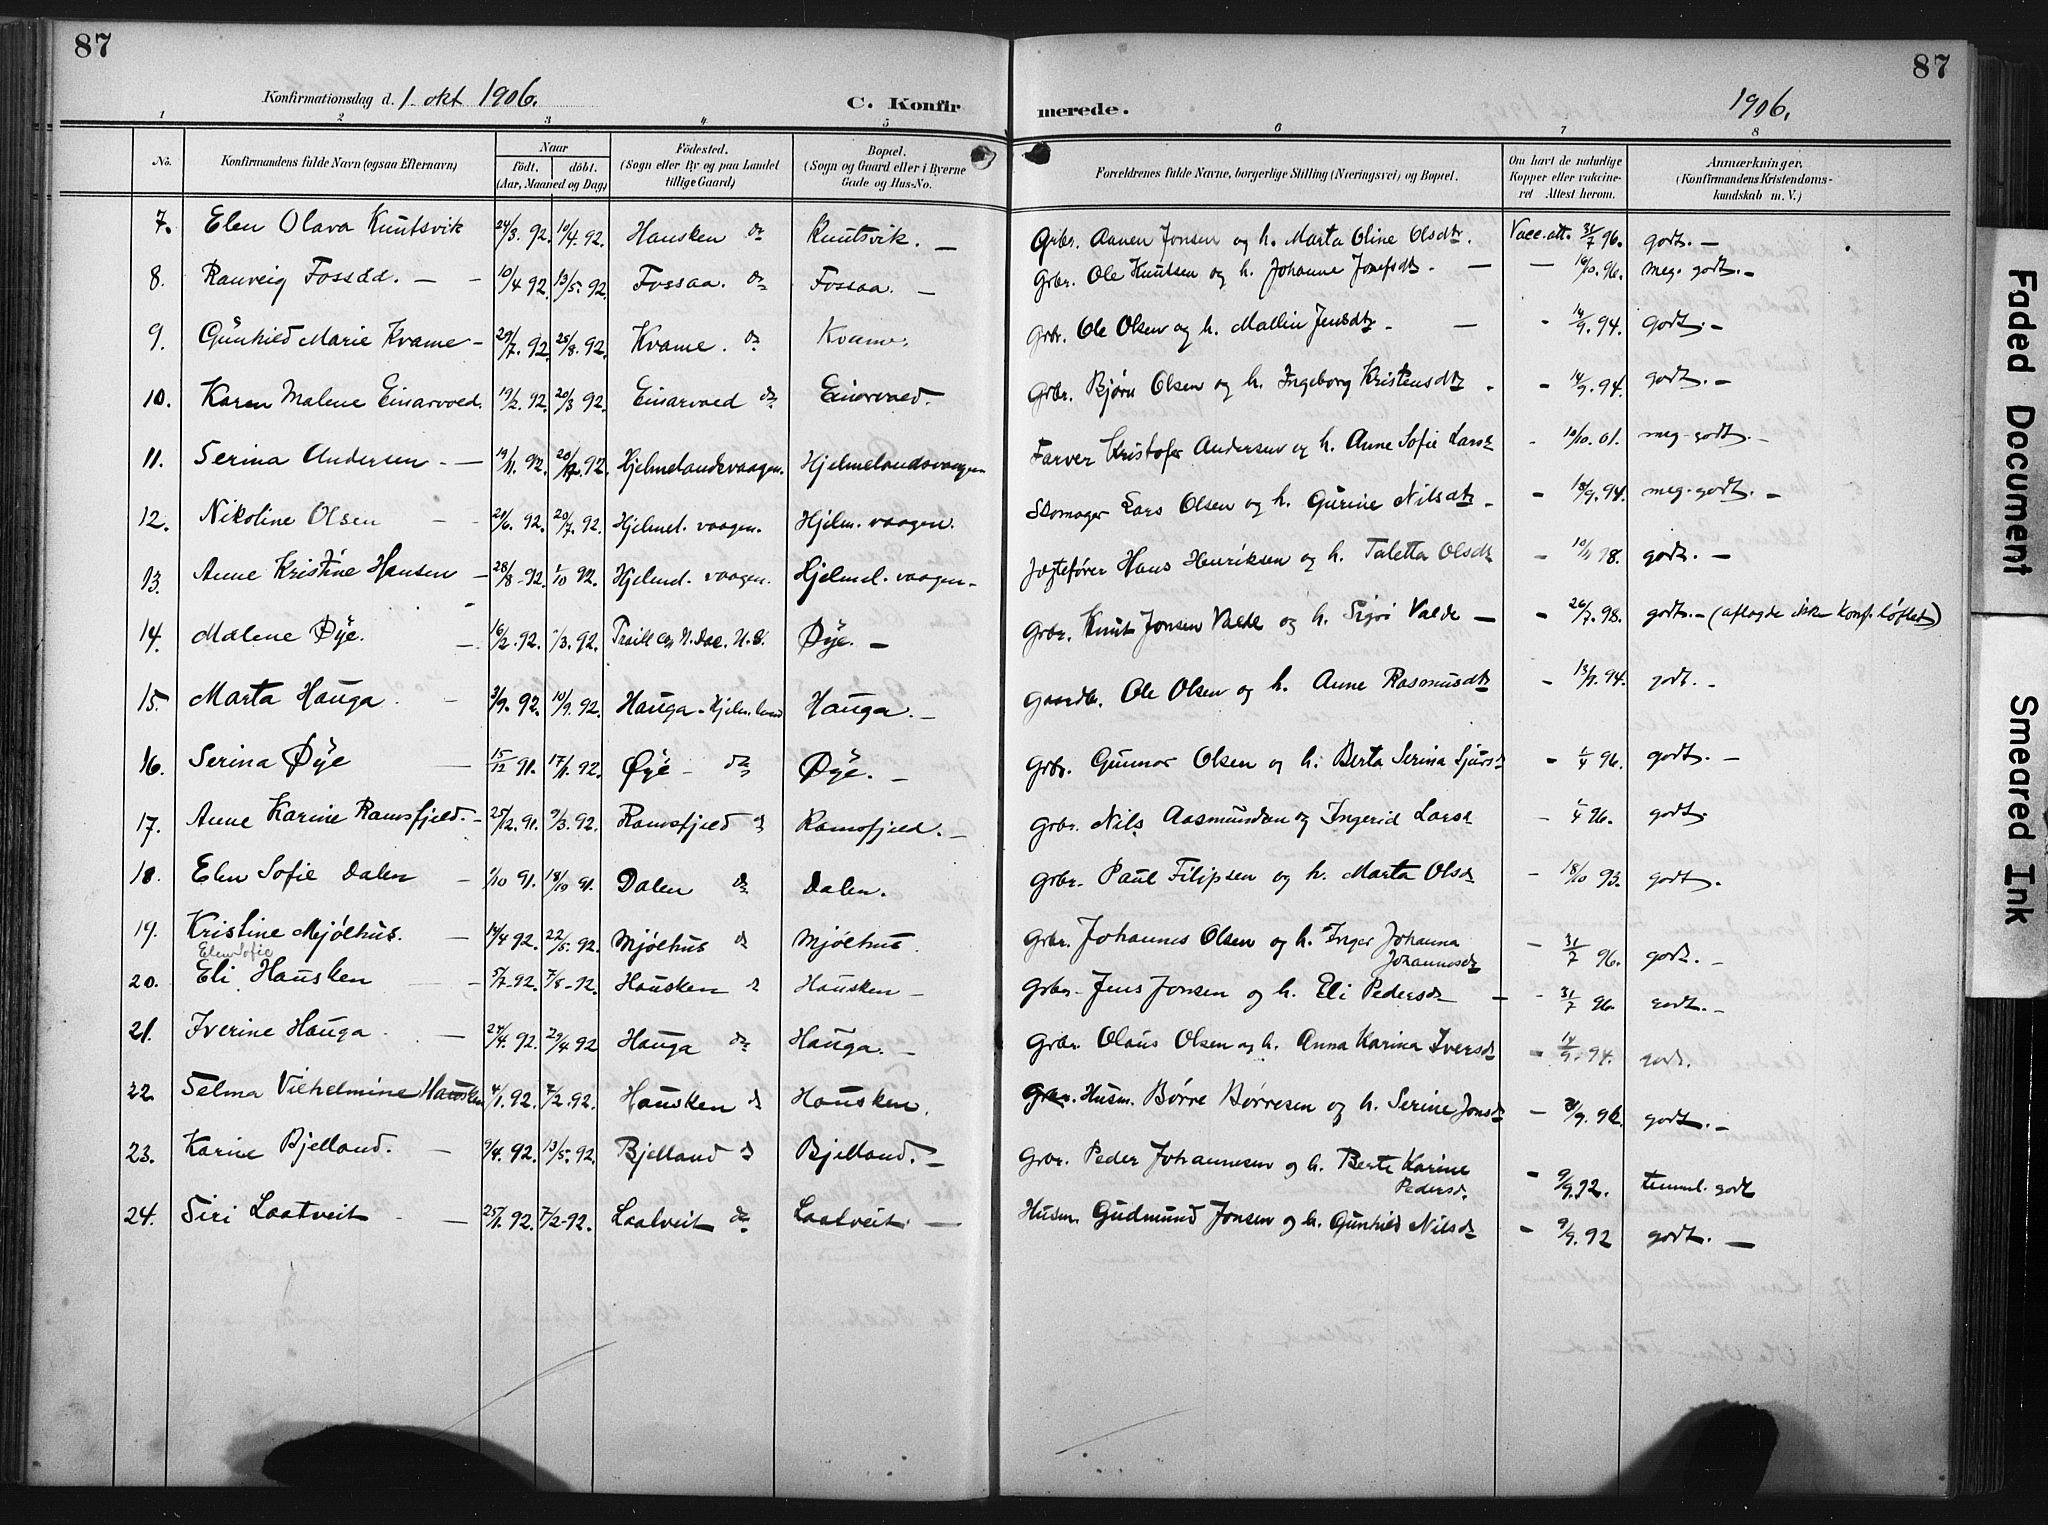 87
87
Konfirmationsdag d. 1. okt 1906.
C. Konfir
merede.
1906.
1 2 3 4 5 6 7 8
No. Konfirmandens fulde Navn (ogsaa Efternavn) Naar født. døbt. (Aar, Maaned og Dag) Fødested. (Sogn eller By og paa Landet tillige Gaard) Bopæl. (Sogn og Gaard eller i Byerne Gade og Hus-No. Forældrenes fulde Navne, borgerlige Stilling (Næringsvei) og Bopæl. Om havt de naturlige Kopper eller vakcineret Attest herom. Anmærkninger, (Konfirmandens Kristendomskundskab m. V.)
7. Elen Olava Knutsvik 24/3. 92. 10/4. 92. Hausken do Knutsvik. — Grbr. Aanen Jonsen og h. Marta Oline Olsdtr. Vacc. att. 31/7 96. godt. —
8. Ranveig Fossaa. — - 10/4 92. 13/5. 92. Fossaa. do Fossaa. — Grbr. Ole Knutsen og h. Johanne Josefsdtr. — — 16/10. 96. meg. godt. -
9. Gunhild Marie Kvame - 29/7. 92. 25/8. 92. Kvame. do Kvame. Grbr. Ole Olsen og h. Mallin Jensdtr - — - 14/9. 94. godt. -
10. Karen Malene Einarvoed. 19/2. 92. 20/3 92. Einarvoed do Einarvoed. Grbr. Bjørn Olsen og h. Ingeborg Kristensdtr - - 14/9. 94. godt. -
11. Serina Andersen - — 19/11. 92. 92. Hjelmelandsvaagen. Hjelmelandsvaagen Farver Kristofer Andersen og h. Anne Sofie Larsd - 10/10. 01. meg. godt. -
12. Nikoline Olsen - 21/6. 92. 20/7. 92. Hjelmel. vaagen. Hjelm. vaagen. Skomager Lars Olsen og h. Gurine Nilsdtr - - 94. meg. godt. -
13. Anne Kristine Hansen - 28/8 - 92. 1/10 92. Hjelmel. vaagen. Hjelmel. vaagen - Jægtefører Hans Henriksen og h. Taletta Olsdtr - 98. godt. —
14. Malene Øye. — 16/2. 92. /3. 92. Traill Co, N. Dac. U. S. Øye. — Grbr. Knut Jonsen Valde og h. Sigri Valde — - 26/7. 98. godt. - (aflagde ikke konf. løftet)
15. Marta Hauga. - 3/9. 92. 10/9. 92. Hauga - Hjelm.land Hauga. - Gaardbr. Ole Olsen og h. Anne Rasmusdtr - 94. godt. -
16. Serina Øye — 15/12 91. 17/1. 92. Øye - do Øye. - Grbr. Gunnar Olsen og h. Berta Serina Sjursd - 1/4 96. godt. -
17. Anne Karine Ramsfjeld. - 25/12. 91. 9/3. 92. Ramsfjeld d Ramsfjeld. - Grbr. Nils Aasmundsen og Ingerid Larsd - 1/4 96. godt.
18. Elen Sofie Dalen - 1/10 91. 18/10 91. Dalen do Dalen. Grbr. Paul Filipsen og h. Marta Olsd - 18/10 93. godt.
19. Kristine Mjølhus. — 14/4 92. 22/5. 92. Mjølhus d Mjølhus. Grbr. Johannes Olsen og h. Inger Johanna Johannesd - 31/7 96. godt. -
Elen Sofie
20. Eli Hausken - - 5/7 - 92. 7/8 - 92. Hausken d Hausken - Grbr. Jens Jonsen og h. Eli Pedersd — - 31/7 96. godt. -
21. Iverine Hauga. — 24/4. 92. 29/4. 92 Hauga do Hauga. - Grbr. Olaus Olsen og h. Anna Karina Iversd - 14/9. 94. godt.
22. Selma Vilhelmine Hausken 4/1. 92. 7/2. 92. Hausken d Hausken. Grbr. Husm. Børre Børresen og h. Serine Jonsd - 96. godt. -
23. Karine Bjelland. - 9/4. 92. 13/5. 92. Bjelland d Bjelland. - Grbr. Peder Johannesen og h. Berte Karine Pedersd. - 9/9. 92. temmel. godt
24. Siri Laatveit - — 25/1. 92. 7/2 - 92. Laatveit do Laatveit. — Husm. Gudmund Jonsen og h. Gunhild Nilsd - 9/9. 92 godt. —
Faded Document
Smeared Ink